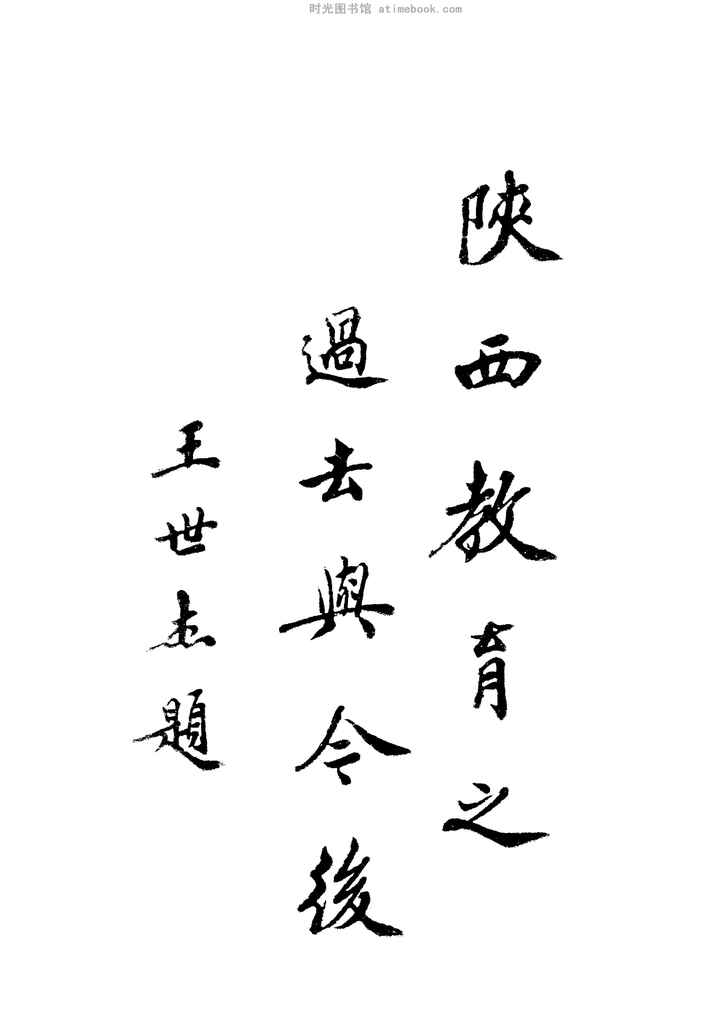 时光图书馆 atimebook.com
陝西教育之
過去與今後
王世杰題